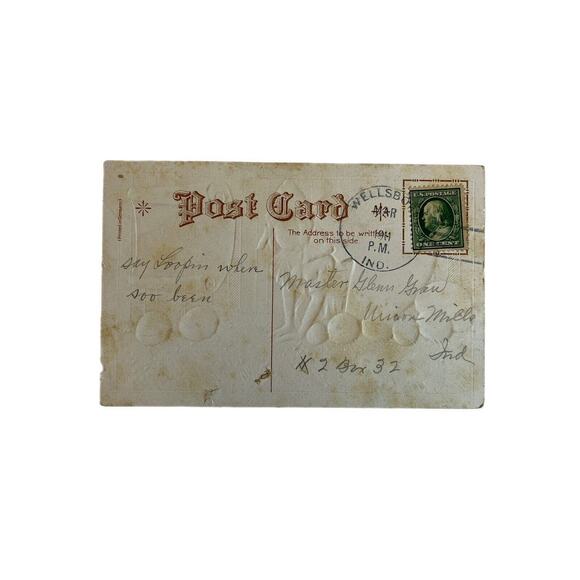 (Printed in Germany)
Post Card
The Address to be written
on this side.
WELLSBO
MAR
1911
P.M.
IND.
U.S. POSTAGE
ONE CENT
say Loopin when
soo been
Master Glenn
Union Mills
Ind
R 2 Box 32